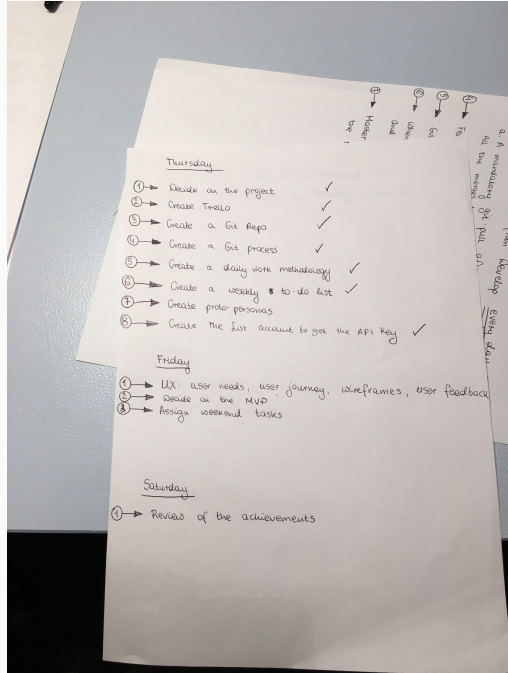 Thursday
1 → Decide on the project ✓
2 → Create Trello ✓
3 → Create a Git Repo ✓
4 → Create a Git process ✓
5 → Create a daily work methodology ✓
6 → Create a weekly to-do list ✓
7 → Create proto-personas
8 → Create the first account to get the API Key ✓
Friday
1 → UX: user needs, user journey, wireframes, user feedback
2 → Decide on the MVP
3 → Assign weekend tasks
Saturday
1 → Review of the achievements
a. A mandatory git pull
All the merges
develop every day
4 →
5 → Git
6 → When
and
7 → Master
the